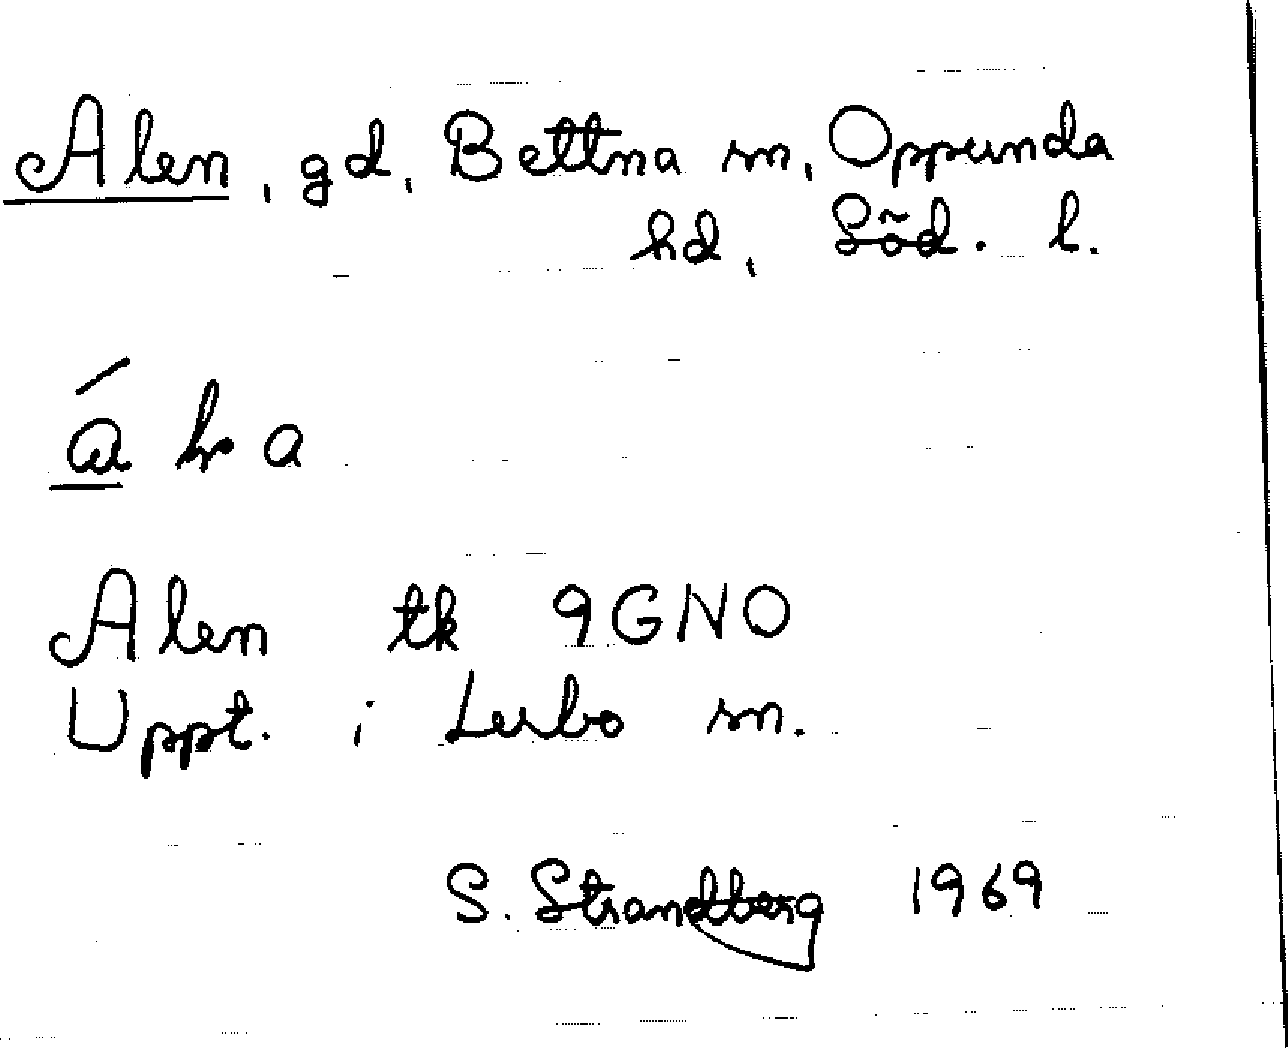 Alen, gd, Bettna sn, Oppunda
hd, Söd. l.
á a
Alen tk 9GNO
Uppt. i Lerbo sn.
S. Strandberg 1969